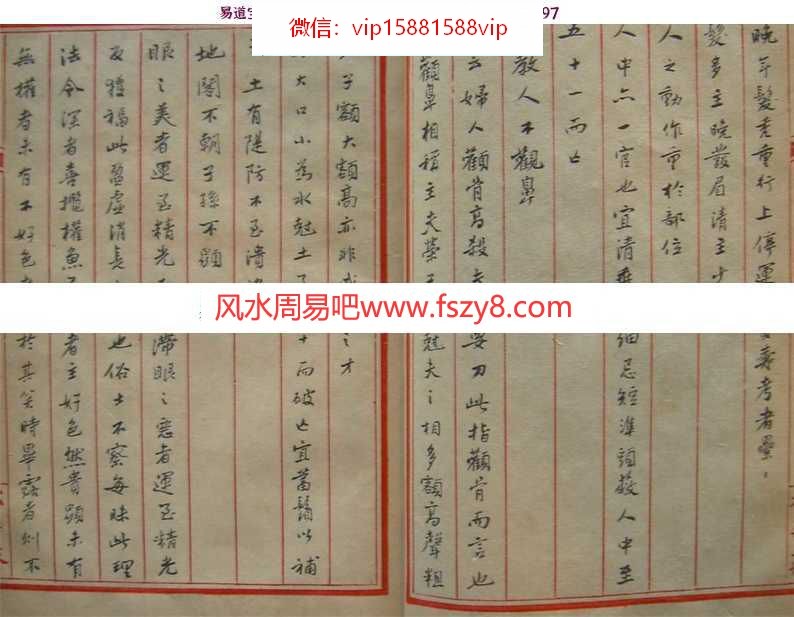 易道宝
97
微信：vip15881588vip
晚年髮秀重行上停運
壽考者壘
髮多主晚發眉清主少
人之動作重於部位
人中亦一官也宜清
細忌短準頭救人中至
五十一而亡
救人不觀鼻
云婦人顴骨高殺夫
要刀此指顴骨而言也
顴鼻相程主夫榮子
尅夫之相多額高聲粗
子額大額高亦非
之才
大口小為水尅土
十而破亡宜蓄鬚以補
土有隄防不至潰
地閣不朝子孫不顯
眼之美者運至精光
滯眼之惡者運至精光
反獲福此盈虛消長
也俗士不察每昧此理
法令深者喜攬權魚
者主好色然貴顯未有
無權者未有不好色
於其笑時畢露者則不
风水周易吧www.fszy8.com